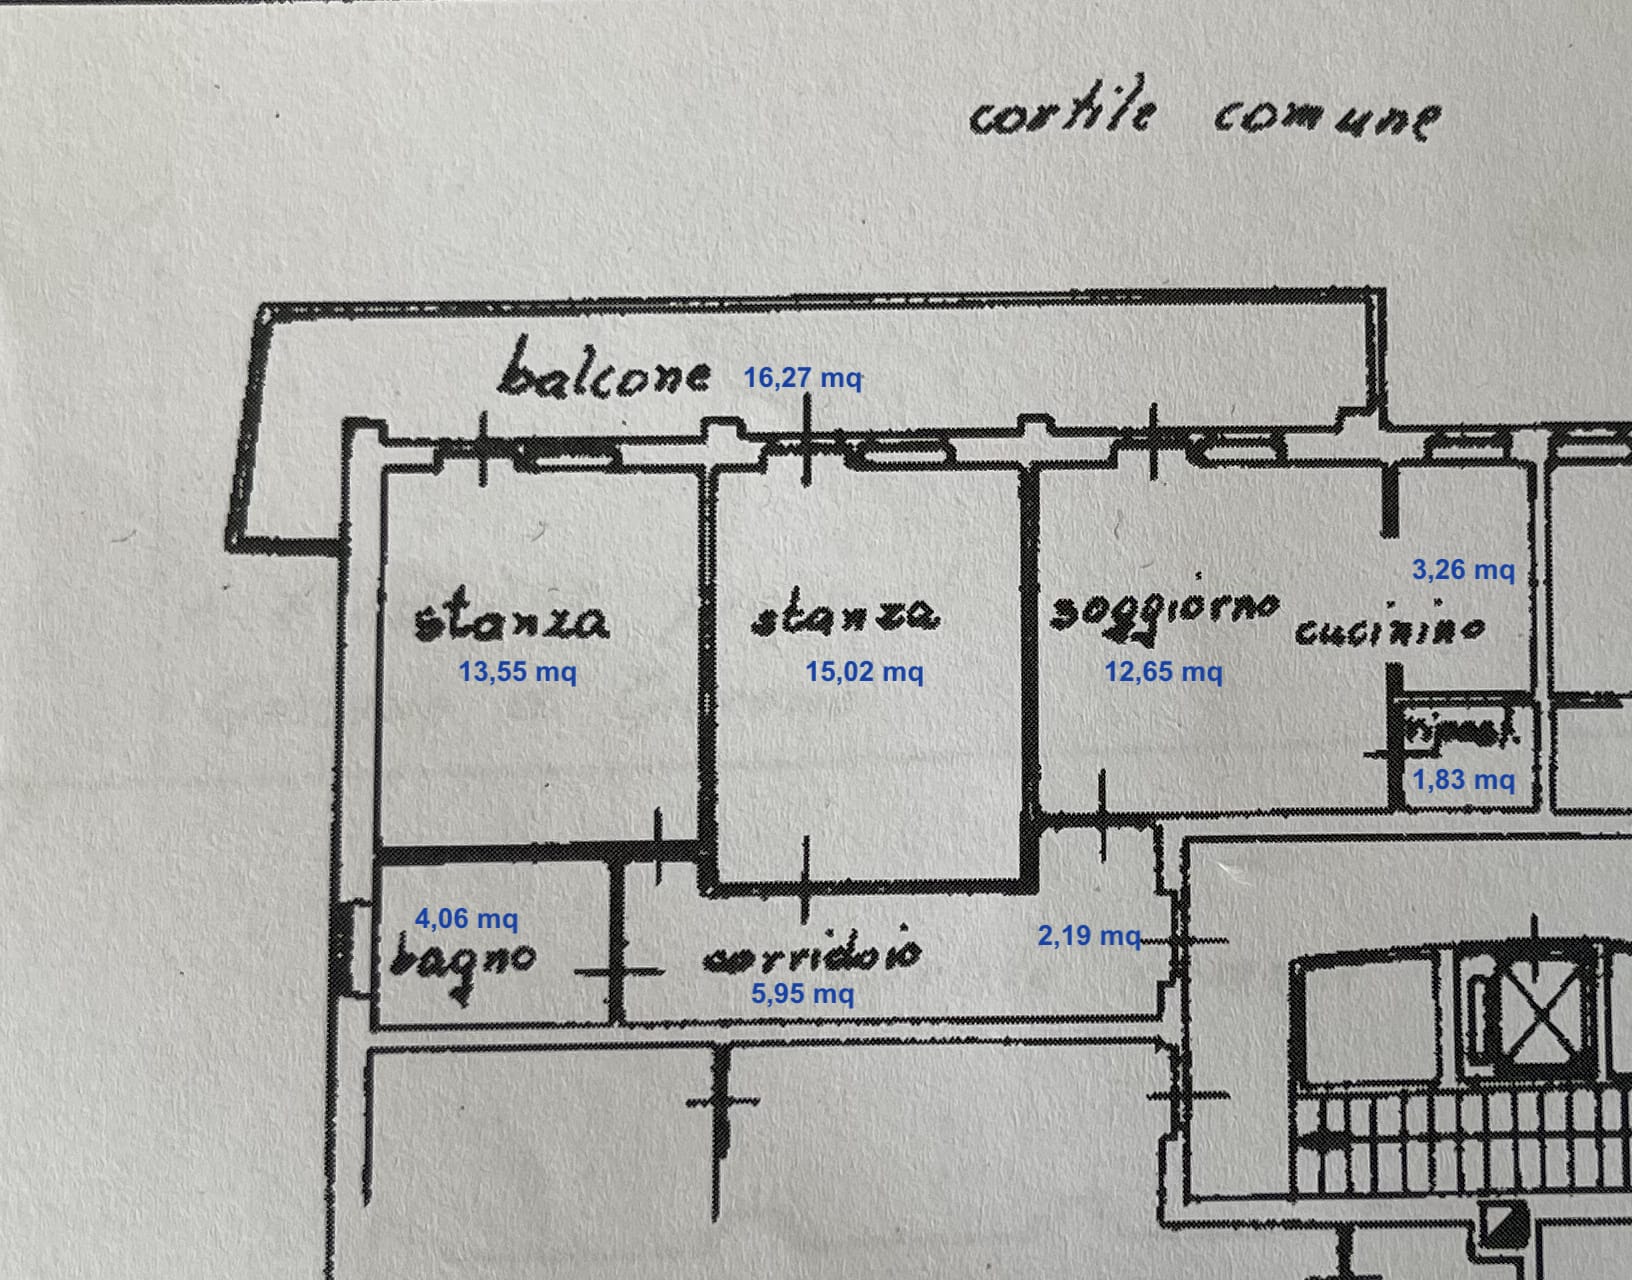 cortile comune
balcone 16,27 mq
stanza
13,55 mq
stanza
15,02 mq
soggiorno
12,65 mq
3,26 mq
cucinino
ripost.
1,83 mq
4,06 mq
bagno
corridoio
5,95 mq
2,19 mq